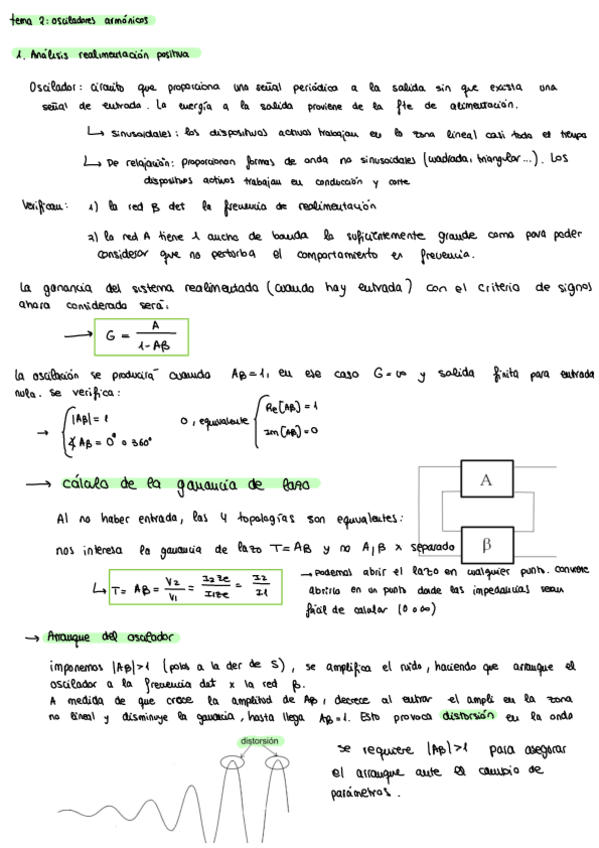 tema 2: osciladores armónicos
1. Análisis realimentación positiva
Oscilador: circuito que proporciona una señal periódica a la salida sin que exista una
señal de entrada. La energía a la salida proviene de la fte de alimentación.
↳ sinusoidales: los dispositivos activos trabajan en la zona lineal casi todo el tiempo
↳ De relajación: proporcionan formas de onda no sinusoidales (cuadrada, triangular...). Los
dispositivos activos trabajan en conducción y corte
Verifican: 1) la red B det la frecuencia de realimentación
2) la red A tiene 1 ancho de banda lo suficientemente grande como para poder
considerar que no perturba el comportamiento en frecuencia.
La ganancia del sistema realimentado (cuando hay entrada) con el criterio de signos
ahora considerado será:
→ G = A / 1-Aβ
La oscilación se producirá cuando Aβ=1, en ese caso G=∞ y salida finita para entrada
nula. se verifica:
→ { |Aβ|=1 o, equivalente { Re[Aβ]=1
∡Aβ=0° o 360° Im[Aβ]=0
→ cálculo de la ganancia de lazo
A
Al no haber entrada, las 4 topologías son equivalentes:
nos interesa la ganancia de lazo T=Aβ y no A,β x separado
β
↳ T= Aβ = V2/V1 = I2Ze/I1Ze = I2/I1
→ Podemos abrir el lazo en cualquier punto. conviene
abrirlo en un punto donde las impedancias sean
fácil de calcular (0 o ∞)
→ Arranque del oscilador
imponemos |Aβ|>1 (polos a la der de S), se amplifica el ruido, haciendo que arranque el
oscilador a la frecuencia det x la red β.
A medida de que crece la amplitud de Aβ, decrece al entrar el ampli en la zona
no lineal y disminuye la ganancia, hasta llega Aβ=1. Esto provoca distorsión en la onda
distorsión
se requiere |Aβ|>1 para asegurar
el arranque ante el cambio de
parámetros.